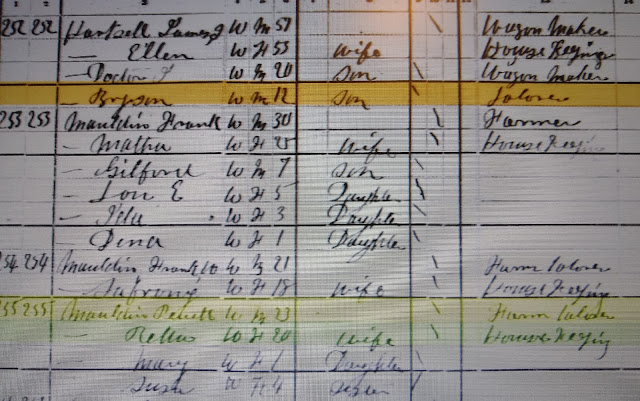 252 252 Hartsell James J W M 57 Wagon Maker
— Ellen W F 53 Wife House Keping
— Doctor F W M 20 Son Wagon Maker
— Bryson W M 12 Son Laborer
253 253 Mauldin Frank W M 30 Farmer
— Matha W F 25 Wife House Keping
— Gilford W M 7 Son
— Lou E W F 5 Daughter
— W F 3 Daughter
— Dena W F 1 Daughter
254 254 Mauldin Frank W M 21 Farm Laborer
— W F 18 Wife House Keping
255 255 Mauldin W M 23 Farm Laborer
— W F 20 Wife House Keping
— Mary W F 1 Daughter
— W F 4